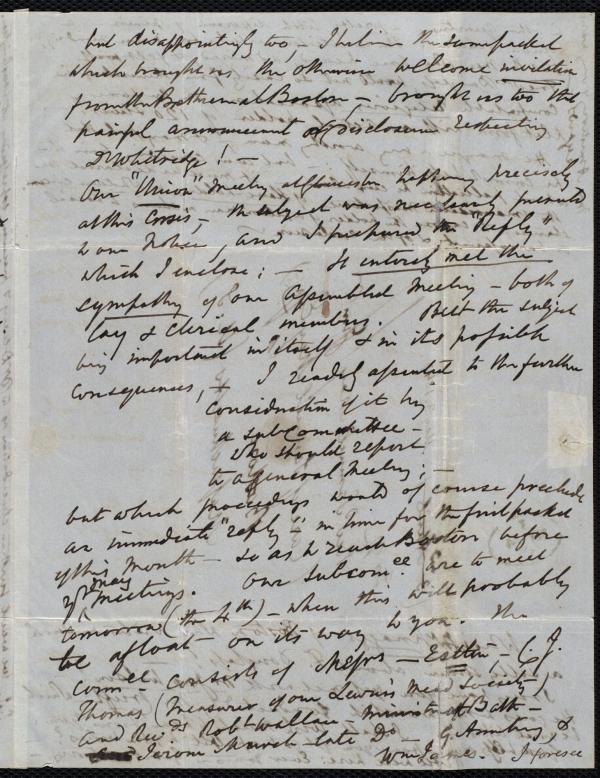 but disappointingly too, – I believe the same packet
which brought us the otherwise welcome invitation
from the Brethren at Boston –, brought us too the
painful announcement & disclosure respecting
Dr Whitridge! –
Our "Union" meeting at Gloucester happening precisely
at this crisis, – the subject was necessarily presented
to our notice, and I prepared the "Reply"
which I enclose; – It entirely met the
sympathy of our assembled meeting – both of
lay & clerical members. But the subject
being important in itself & in its possible
consequences, – I readily assented to the further
consideration of it by
a subcommittee –
who should report
to a general meeting; –
but which proceedings would of course preclude
an immediate "reply" – in time for the first packet
of this month – so as to reach Boston before
yr May meetings. Our subcomee. are to meet
tomorrow (the 4th) – when this will probably
be afloat – on its way to you. The
comee. consists of Messrs – Estlin, – (J.
Thomas (Treasurer of our Lewin's Mead Society)
and Revds Robt Wallace – minister at Bath –
Jerom Murch – late do – G. Armstrong, &
Wm James. – I foresee